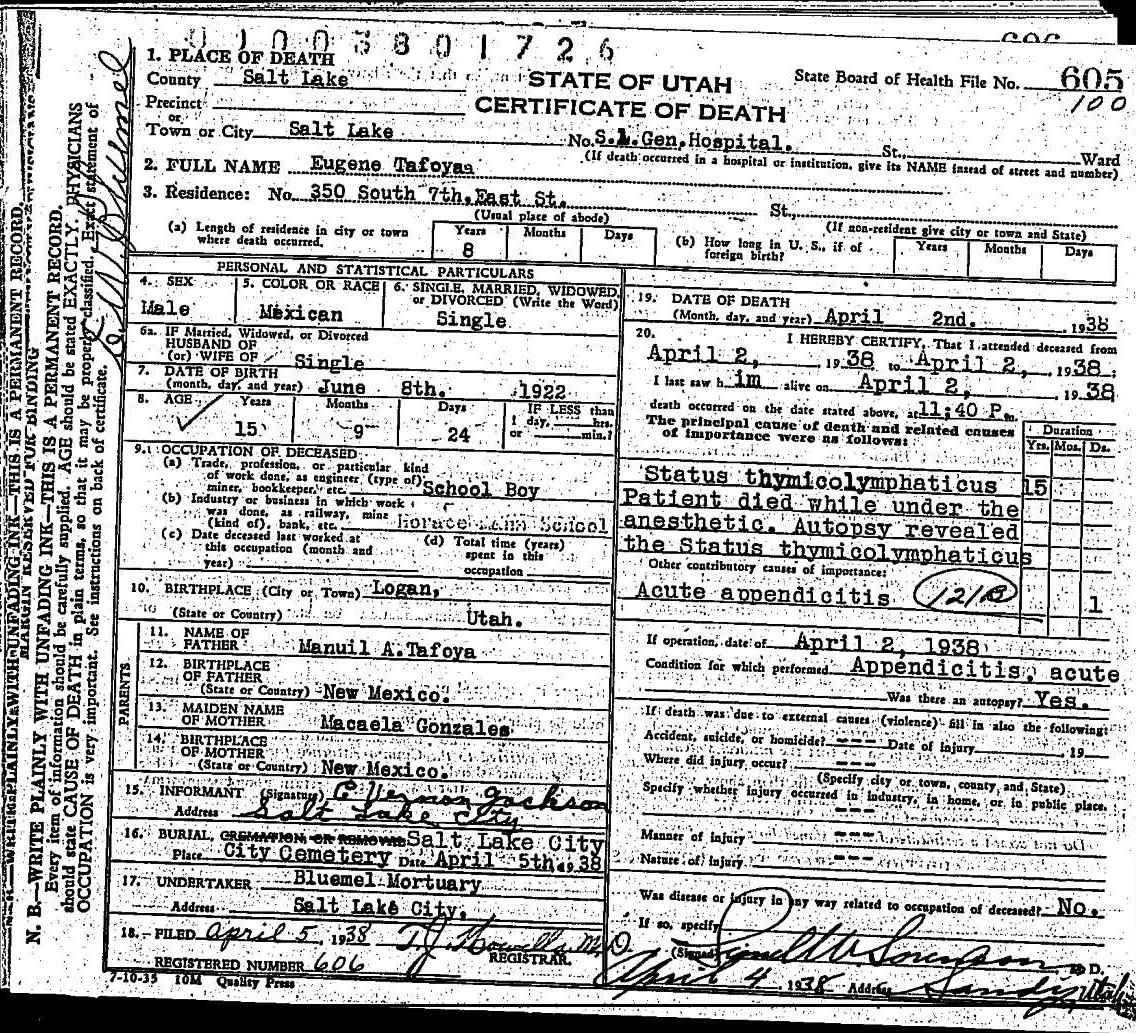 0 1 0 0 3 8 0 1 7 2 6
606
1. PLACE OF DEATH
County Salt Lake
STATE OF UTAH
CERTIFICATE OF DEATH
State Board of Health File No. 605
100
Precinct
or
Town or City Salt Lake
No. S.L. Gen. Hospital. St., Ward
(If death occurred in a hospital or institution, give its NAME instead of street and number)
2. FULL NAME Eugene Tafoya
3. Residence: No. 350 South 7th. East St. St.,
(Usual place of abode)
(If non-resident give city or town and State)
(a) Length of residence in city or town where death occurred.
Years Months Days
8
(b) How long in U. S., if of foreign birth?
Years Months Days
PERSONAL AND STATISTICAL PARTICULARS
4. SEX
Male
5. COLOR OR RACE
Mexican
6. SINGLE, MARRIED, WIDOWED, or DIVORCED (Write the Word)
Single
6a. IF Married, Widowed, or Divorced
HUSBAND OF
(or) WIFE OF Single
7. DATE OF BIRTH
(month, day, and year) June 8th. 1922
8. AGE Years Months Days
IF LESS than
1 day, hrs.
or min.?
15 9 24
9. OCCUPATION OF DECEASED
(a) Trade, profession, or particular kind
of work done, as engineer (type of)
miner, bookkeeper, etc. School Boy
(b) Industry or business in which work
was done, as railway, mine
(kind of), bank, etc. Horace Mann School
(c) Date deceased last worked at
this occupation (month and
year)
(d) Total time (years)
spent in this
occupation
10. BIRTHPLACE (City or Town) Logan,
(State or Country) Utah.
PARENTS
11. NAME OF
FATHER Manuil A. Tafoya
12. BIRTHPLACE
OF FATHER
(State or Country) New Mexico.
13. MAIDEN NAME
OF MOTHER Macaela Gonzales
14. BIRTHPLACE
OF MOTHER
(State or Country) New Mexico.
15. INFORMANT (Signature) C Vernon Jackson
Address Salt Lake City
16. BURIAL, CREMATION OR REMOVAL Salt Lake City
Place City Cemetery Date April 5th. 1938
17. UNDERTAKER Bluemel Mortuary
Address Salt Lake City.
18. FILED April 5, 1938
REGISTRAR.
REGISTERED NUMBER 606
7-10-35 10M Quality Press
19. DATE OF DEATH
(Month, day, and year) April 2nd. 1938
20. I HEREBY CERTIFY, That I attended deceased from
April 2, 1938 to April 2, 1938;
I last saw him alive on April 2, 1938
death occurred on the date stated above, at 11:40 P.m.
The principal cause of death and related causes
of importance were as follows:
Duration
Yrs. Mos. Ds.
Status thymicolymphaticus 15
Patient died while under the
anesthetic. Autopsy revealed
the Status thymicolymphaticus
Other contributory causes of importance:
Acute appendicitis 1
If operation, date of April 2, 1938
Condition for which performed Appendicitis, acute
Was there an autopsy? Yes.
If death was due to external causes (violence) fill in also the following:
Accident, suicide, or homicide? --- Date of injury 19
Where did injury occur? ---
(Specify city or town, county, and State)
Specify whether injury occurred in industry, in home, or in public place.
---
Manner of injury ---
Nature of injury ---
Was disease or injury in any way related to occupation of deceased? No.
If so, specify
(Signed) Sorenson M D.
April 4 1938 Address Sandy, Utah
N. B.—WRITE PLAINLY WITH UNFADING INK—THIS IS A PERMANENT RECORD.
Every item of information should be carefully supplied. AGE should be stated EXACTLY. PHYSICIANS
should state CAUSE OF DEATH in plain terms, so that it may be properly classified. Exact statement of
OCCUPATION is very important. See instructions on back of certificate.
MARGIN RESERVED FOR BINDING